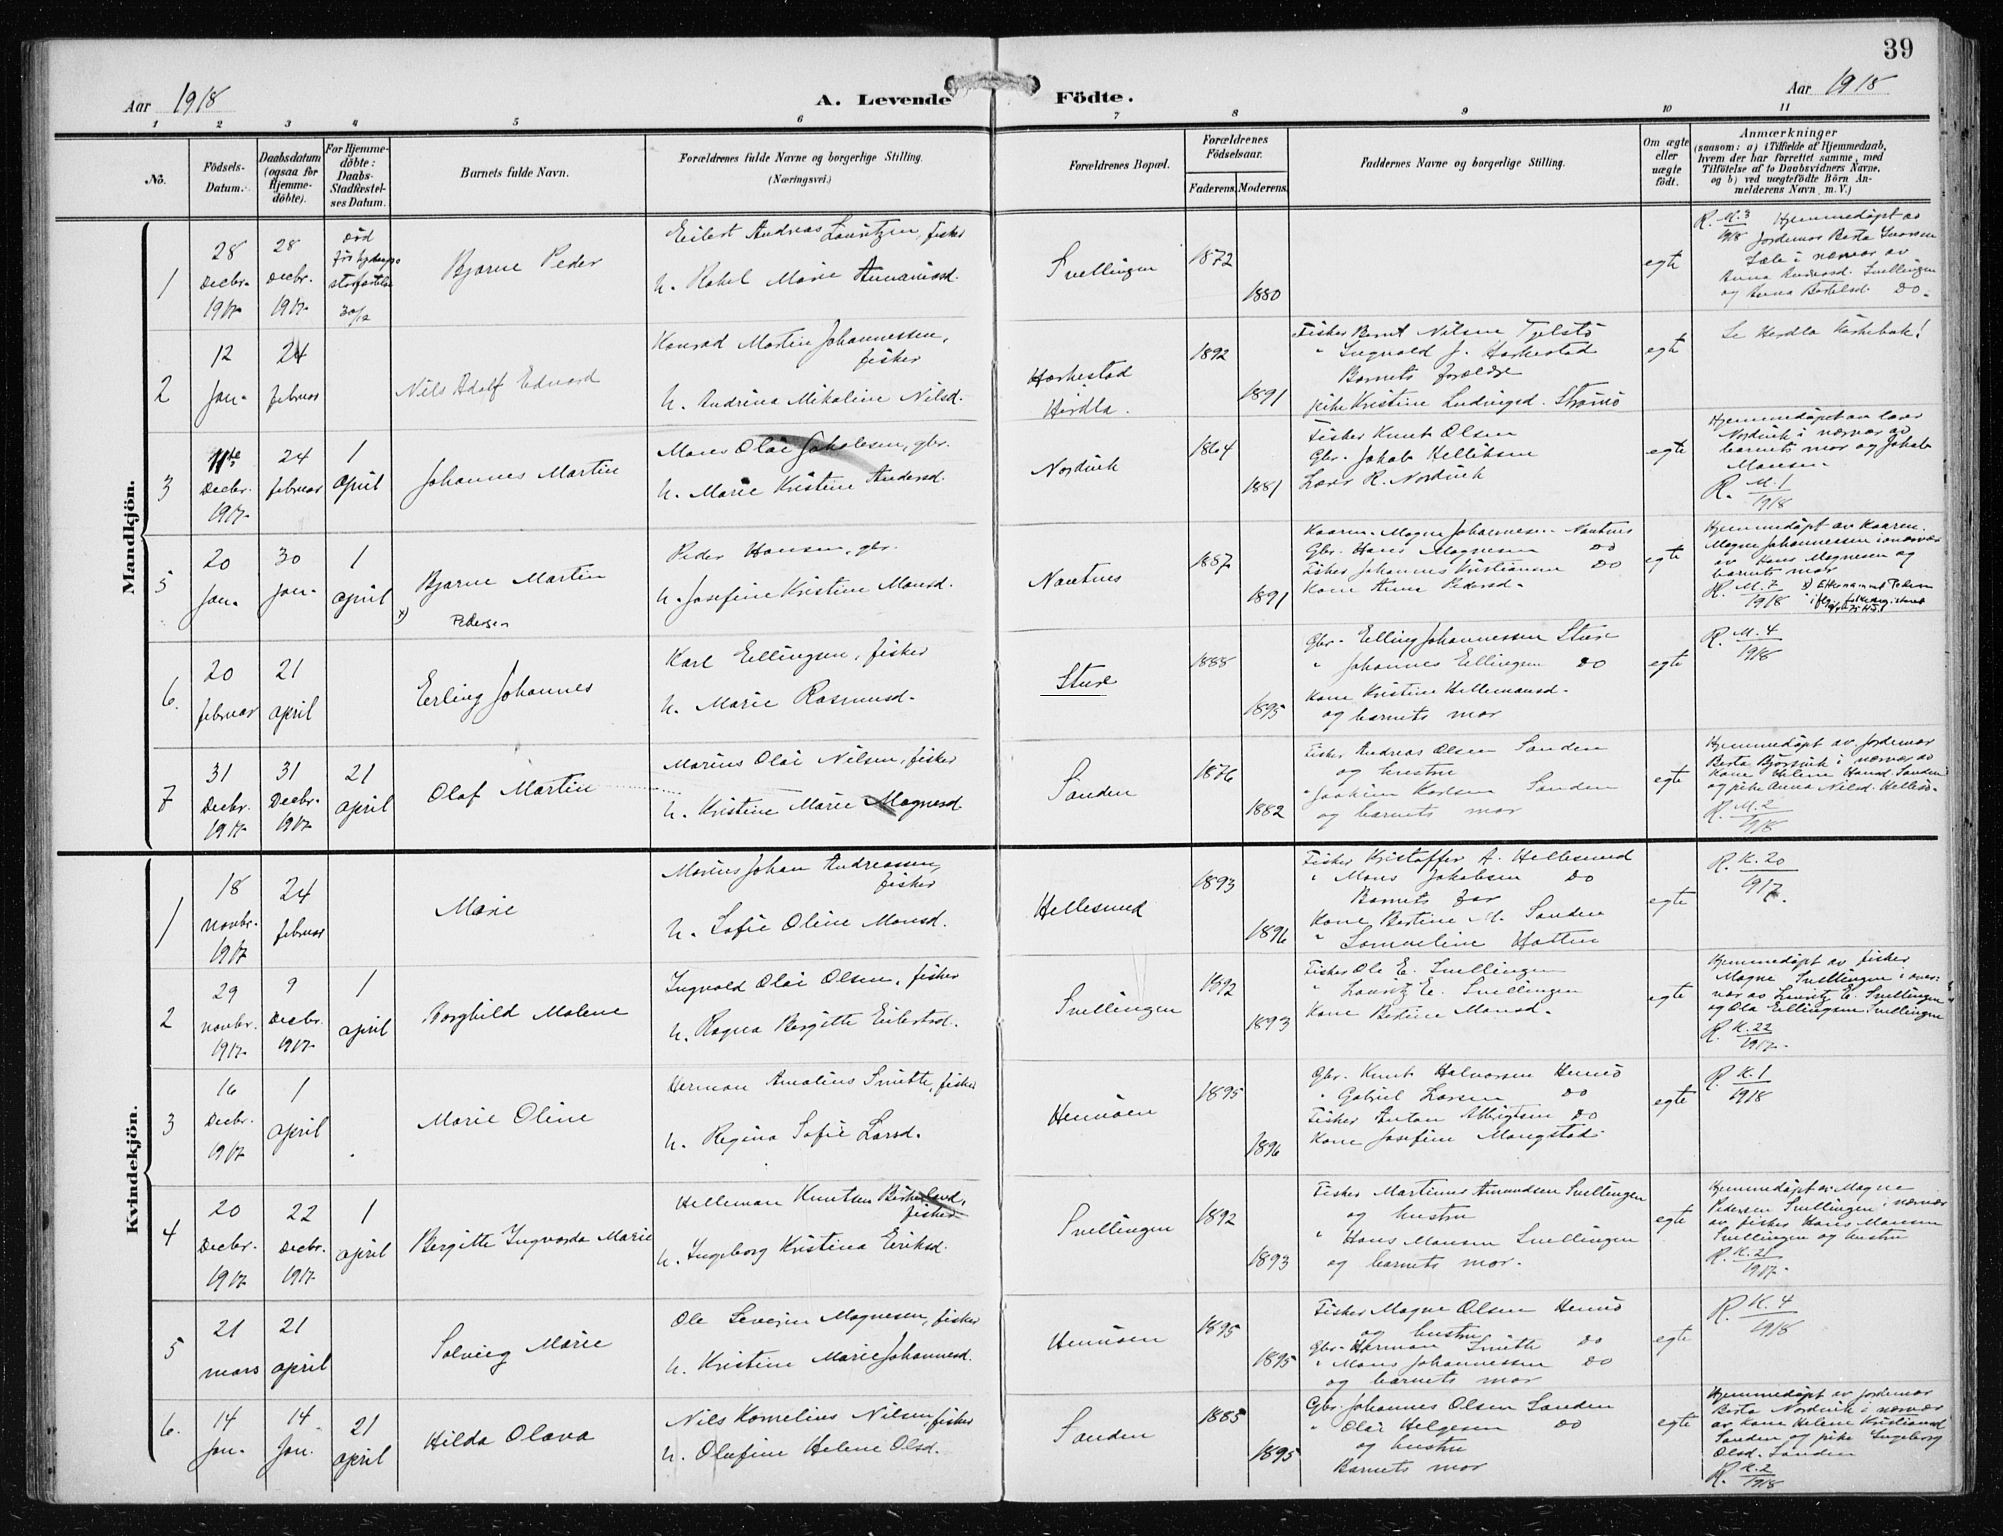 39
Aar 1918
A. Levende Födte.
Aar 1918
1 2 3 4 5 6 7 8 9 10 11
No.
Födsels-Datum.
Daabsdatum (ogsaa for Hjemmedöbte).
For Hjemmedöbte: Daabs-Stadfæstelses Datum.
Barnets fulde Navn.
Forældrenes fulde Navne og borgerlige Stilling. (Næringsvei.)
Forældrenes Bopæl.
Forældrenes Födselsaar.
Faderens. Moderens.
Faddernes Navne og borgerlige Stilling.
Om ægte eller uægte födt.
Anmærkninger
(saasom: a) i Tilfælde af Hjemmedaab, hvem der har forrettet samme, med Tilföielse af to Daabsvidners Navne, og b) ved uægtefödte Börn Anmelderens Navn m. V.)
Mandkjön.
1
28 Decbr. 1917
28 Decbr. 1917
död
30/12
Bjarne Peder
Eilert Andreas Lauritzen, fisker
h. Rakel Marie Ananiasd.
Svellingen
1872
1880
egte
R. M.3 1918
Hjemmedøpt av
Jordemor Berta
i nærvær av
Anna Andersd. Svellingen
og Anna Bertelsd. Do.
2
12 Jan.
24 februar
Nils Adolf Edvard
Konrad Martin Johannessen, fisker
h. Andrina Mikaline Nilsd.
Harkestad Herdla.
1892
1891
Fisker Bernt Nilsen
" Ingvald J. Harkestad
Barnets forældre
Pike Kristine Ludvigsd.
egte
Se Herdla Kirkebok!
3
11te Decbr. 1917
24 februar
1 april
Johannes Martin
Mons Olai Jakobsen, gbr.
h. Marie Kristine Andersd.
Nordvik
1864
1881
Fisker Knut Olsen
Gbr. Jakob Helliksen
Lars R. Nordvik
egte
Hjemmedøpt av Lars
Nordvik i nærvær av
barnets mor og Jakob
Monsen
R. M.1 1918
5
20 Jan.
30 Jan.
1 april
Bjarne Martin
x) Pedersen
Peder Hansen, gbr.
h. Josefine Kristine Monsd.
Nautnes
1887
1891
Kaarem. Magne Johannesen Nautnes
Gbr. Hans Magnesen Do
Fisker Johannes Kristiansen Do
Kone Anna Pedersd.
egte
Hjemmedøpt av Kaarem.
Magne Johannessen i nærvær
av Hans Magnesen og
barnets mor
R. M.7 1918
x) Etternavnet Pedersen
i flg. folkeregisteret
6.
20 februar
21 april
Erling Johannes
Karl Ellingsen, fisker
h. Marie Rasmusd.
Sture
1888
1895
Gbr. Elling Johannessen Sture
" Johannes Ellingsen Do
Kone Kristine Hellemansd.
og barnets mor
egte
R. M.4 1918
7
31 Decbr. 1917
31 Decbr. 1917
21 april
Olaf Martin
Marius Olai Nilsen, fisker
h. Kristine Marie Magnesd
Sanden
1876
1882
Fisker Andreas Olsen Sanden
og hustru
" Joakim Karlsen Sanden
og barnets mor
egte
Hjemmedøpt av Jordemor
Berta Bjørsvik i nærvær av
Kone Helene Hansd. Sanden
og pike Anna Nilsd.
R. M.2 1918
Kvindekjön.
1
18 novbr. 1917
24 februar
Marie
Marius Johan Andreassen, fisker
h. Sofie Oline Monsd.
Hellesund
1893
1896
Fisker Kristoffer A. Hellesund
" Mons Jakobsen Do
Barnets far
Kone Bertine M. Sanden
" Samueline Hatten
egte
R. K.20 1917.
2
29 novbr. 1917
9 Decbr. 1917
1 april
Borghild Malene
Ingvald Olai Olsen, fisker
h. Ragna Bergitte Eilertsd.
Svellingen
1892
1893
Fisker Ole E. Svellingen
" Lauritz E. Svellingen
Kone Bertine Monsd.
egte
Hjemmedøpt av fisker
Magne Svellingen i nærvær
av Lauritz E. Svellingen
og Ola Ellingsen Svellingen
R. K.22 1917.
3
16 Decbr. 1917
1 april
Marie Oline
Herman Amalius Smith, fisker
h. Regina Sofie Larsd.
Hennøen
1895
1896
Gbr. Knut Halvorsen Hennø
" Gabriel Larsen Do
Fisker Anton Albrigtsen Do
Kone Josefine Mongstad
egte
R. K.1 1918
4
20 Decbr. 1917
22 Decbr. 1917
1 april
Bergitte Ingvarda Marie
Helleman Knutsen Birkeland, fisker
h. Ingeborg Kristina Eriksd.
Svellingen
1892
1893
Fisker Martinus Amundsen Svellingen
og hustru
" Hans Monsen Svellingen
og barnets mor.
egte
Hjemmedøpt av Magne
Pedersen Svellingen i nærvær
av fisker Hans Monsen
Svellingen og hustru
R. K.21 1917.
5
21 mars
21 april
Solveig Marie
Ole Severin Magnesen, fisker
h. Kristine Marie Johannesd.
Hennøen
1895
1895
Fisker Magne Olsen Hennø
og hustru
Gbr. Herman Smith Do
" Mons Johannessen Do
og barnets mor
egte
R. K.4 1918
6.
14 Jan.
14 Jan.
21 april
Hilda Olava
Nils Kornelius Nilsen, fisker
h. Olufine Helene Olsd.
Sanden
1885
1895
Gbr. Johannes Olsen Sanden
" Olai Helgesen Do
og hustru
Barnets mor
egte
Hjemmedøpt av Jordemor
Berta Nordvik i nærvær
av Kone Helene Kristiansd
Sanden og pike Ingeborg
Olsd. Sanden
R. K.2 1918